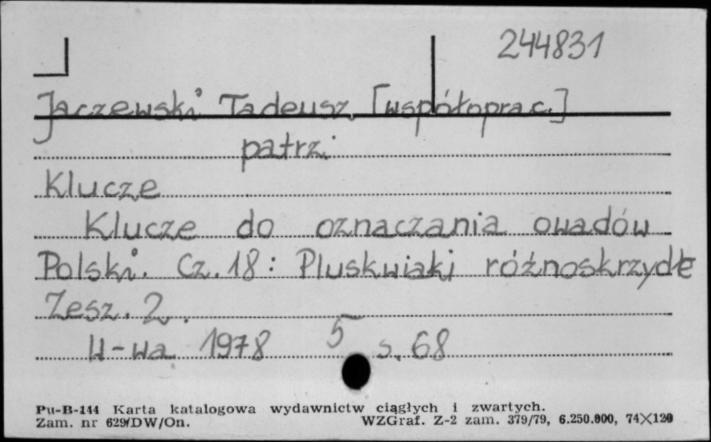 244831
Jaczewski Tadeusz [współoprac.]
patrz:
Klucze
Klucze do oznaczania owadów
Polski. Cz. 18: Pluskwiaki różnoskrzydłe
Zesz. 2.
W-wa 1978 5 s. 68
Pu-B-144 Karta katalogowa wydawnictw ciągłych i zwartych.
Zam. nr 629/DW/On. WZGraf. Z-2 zam. 379/79, 6.250.000, 74X120